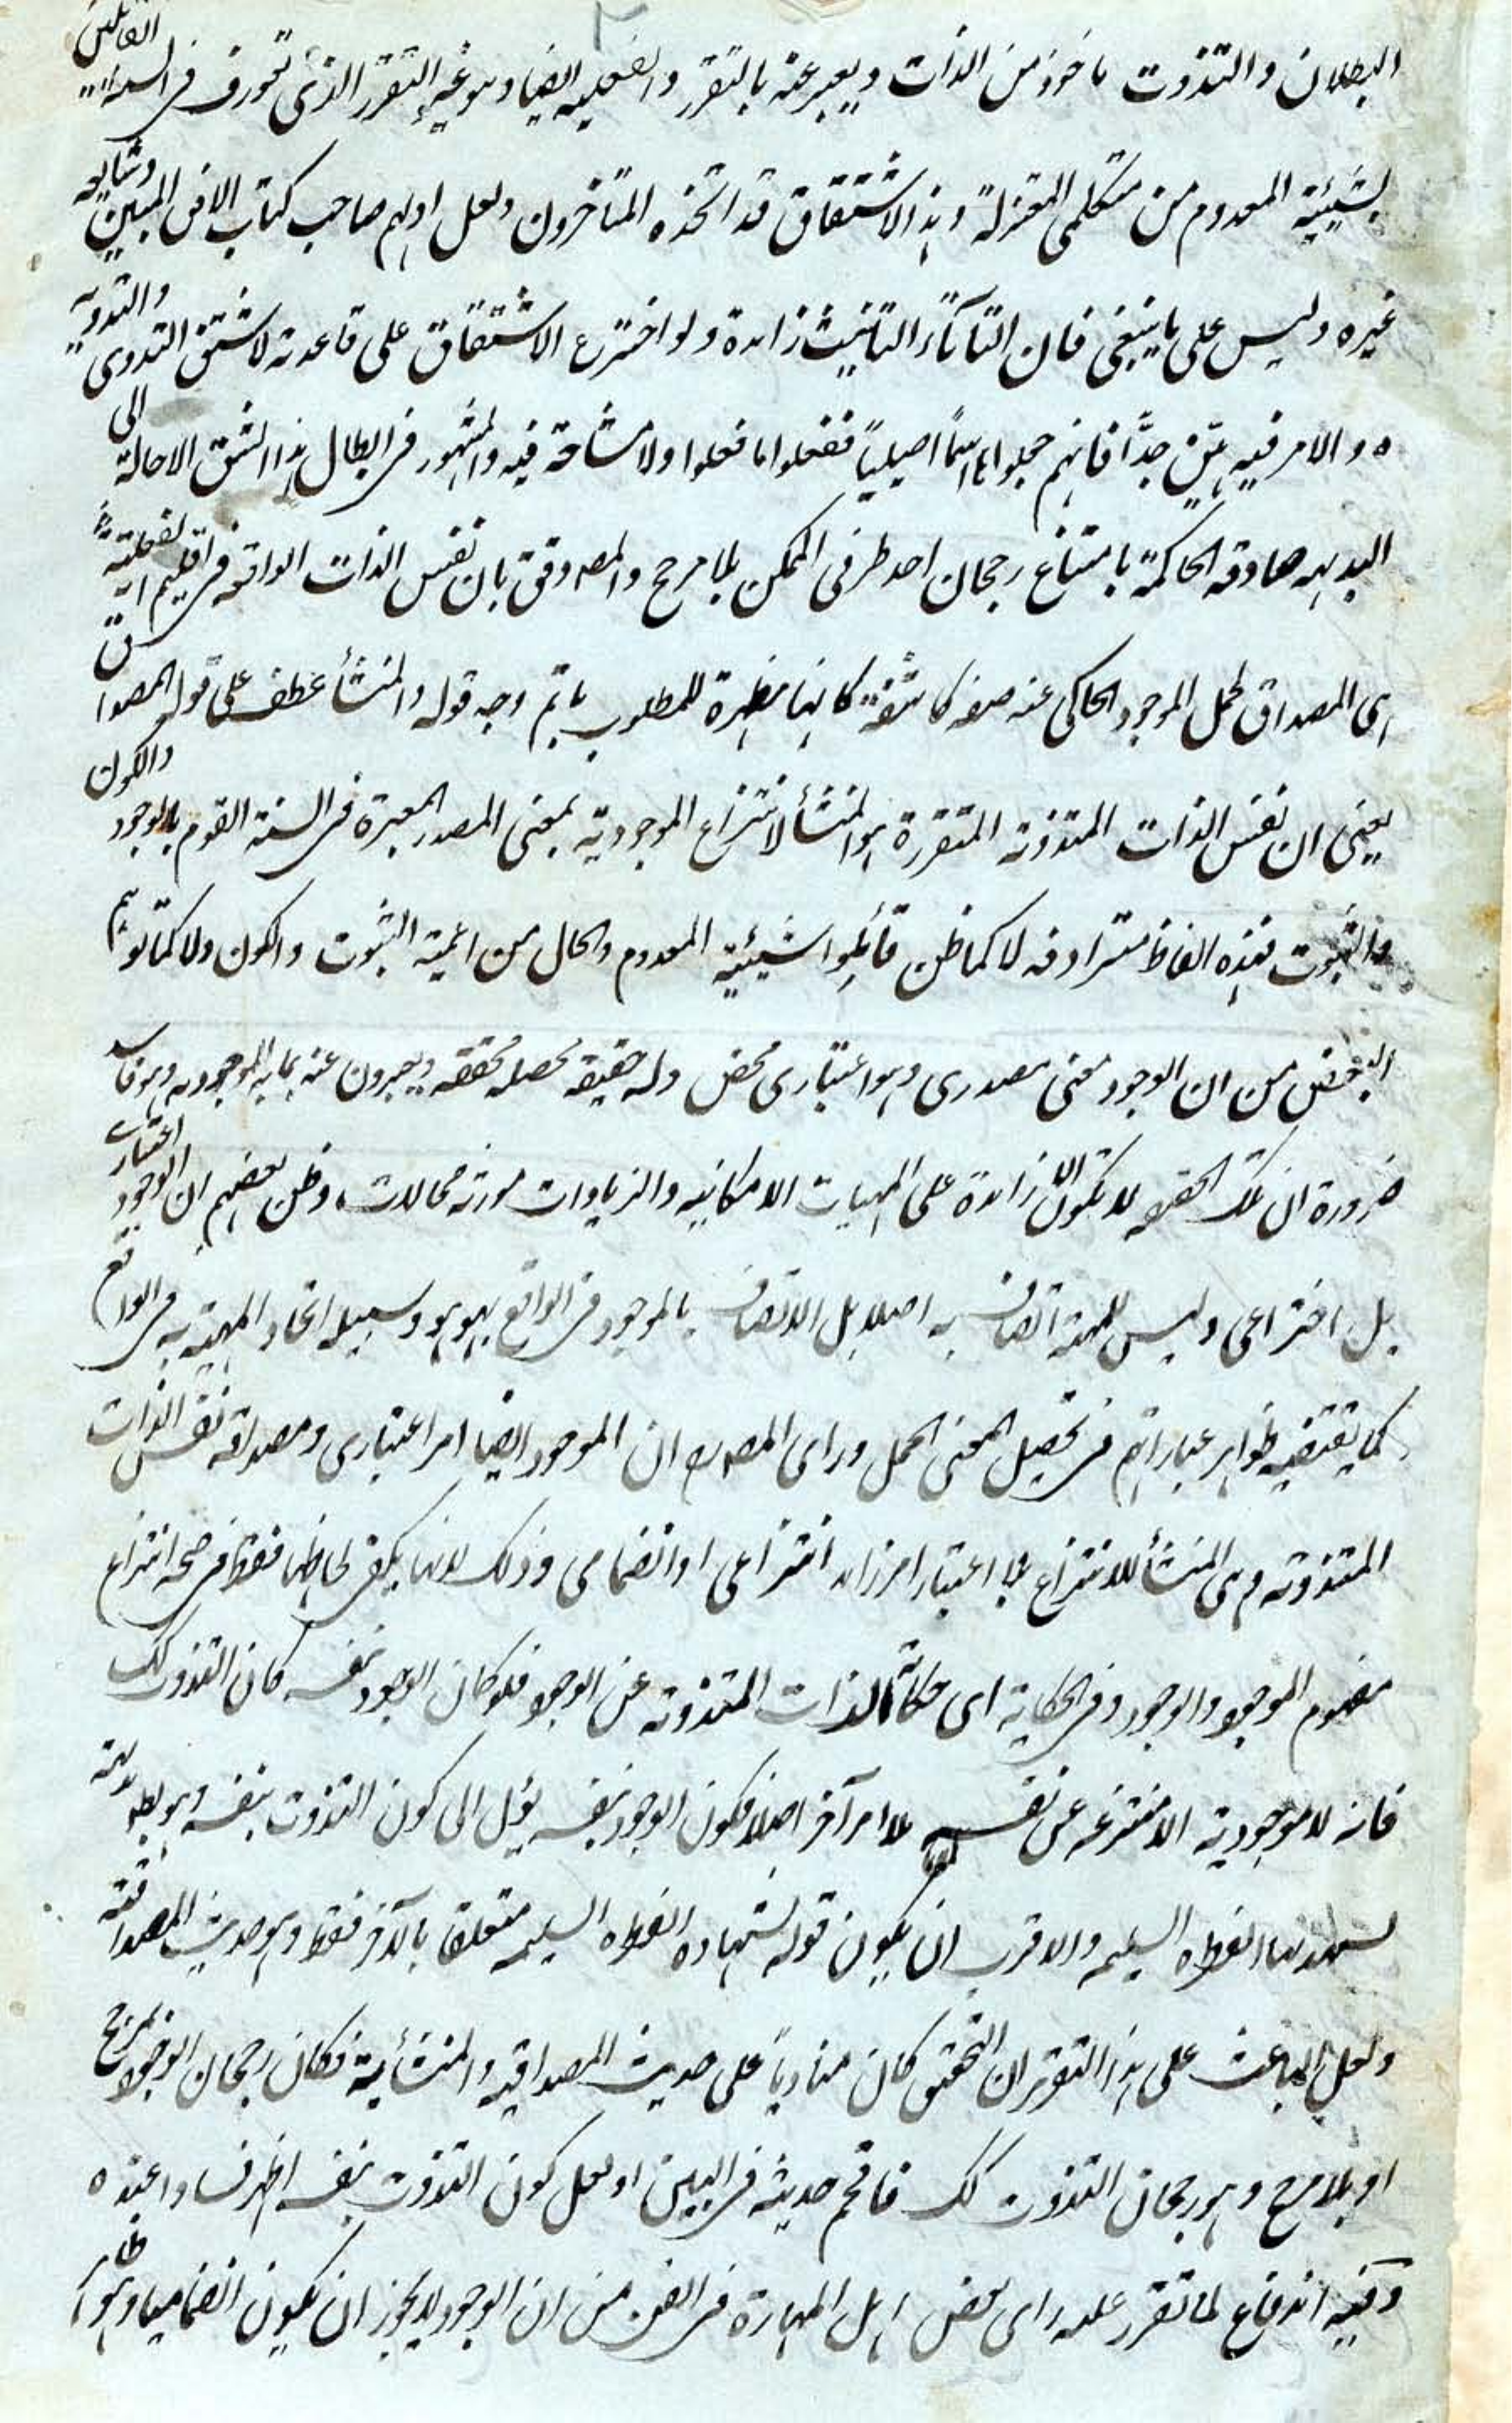 البطلان والتذوت ماخوذ من الذات ويعبر عنه بالتقرر والفعلية ايضا وهو غير التقرر الذى تعورف فى السنة القائلين
بشيئية المعدوم من متكلمى المعتزلة وهذا الاشتقاق قد اتخذه المتاخرون ولعل اولهم صاحب كتاب الافق المبين وشايعه
غيره وليس على ما ينبغى فان التاء تاء التانيث زائدة ولو اخترع الاشتقاق على قاعدته لاشتق التذوى والتذويه
ه والامر فيه هين جدًّا فانهم جعلوا اسمًا اصيليًا ففعلوا ما فعلوا ولا مشاحة فيه والمشهور فى ابطال هذا الشق الاحالة الى
البديهه صادقه الحاكمة بامتناع رجحان احد طرفى الممكن بلا مرجح والمصدوق بان نفس الذات الواقعه فى اقليم الفعلية
اى المصداق لحمل الموجود الحاكى عنه صفه كاشفة كانها مظهرة للمطلوب باتم وجه قوله والمنشأ عطف على قوله المصداق
يعنى ان نفس الذات المتذوته المتقررة هو المنشأ لانتزاع الموجودية بمعنى المصدر المعبرة فى السنة القوم بالوجود والكون
والثبوت فهذه الفاظ مترادفه لا كما ظن قائلوا شيئية المعدوم والحال من اعمية الثبوت والكون ولا كما توهم
البعض من ان الوجود معنى مصدرى وهو اعتبارى محض وله حقيقه محصله محققه ويعبرون عنه بما به الموجوديه وهو فاسد
ضرورة ان تلك الحقيقه لا تكون الا زائدة على المهيات الامكانيه والزيادات مورثه محالات وظن بعضهم ان الوجود اعتبارى
بل اختراعى وليس للمهية اتصاف به اصلا بل الاتصاف بالموجود فى الواقع بهو هو وسبيله اتحاد المهية به فى الواقع
كما يقتضيه ظواهر عباراتهم فى تحصيل معنى الحمل وراى المصـ ان الموجود ايضا امر اعتبارى ومصداقه نفس الذات
المتذوته وهى المنشأ للانتزاع بلا اعتبار امر زائد انتزاعى او انضمامى وذلك لانها يكفى لحاظها فقط فى صحة انتزاع
مفهوم الموجود والوجود وفى الحكاية اى حكاية الذات المتذوته عن الوجود فلو كان الوجود بنفسه كان التذوت كك
فانه لا موجودية الا منتزعه عن نفسه بلا امر آخر اصلا فكون الوجود بنفسه يؤل الى كون التذوت بنفسه وهو بط بداهة
لشهدتها الفطرة السليمه والاقرب ان يكون قوله بشهادة الفطره السليمه متعلقا بالآخر فقط وهو حديث المصداقية
ولعل الباعث على هذا التقرير ان التحقق كان مناديًا على حديث المصداقيه والمنشأية فكان رجحان الوجود لا بمرجح
او بلا مرجح وهو رجحان التذوت كك فاقحم حديثه فى البين او لعل كون التذوت بنفسه اظهر فسادا عنده
وفيه اندفاع لما تقرر عليه راى بعض اهل المهارة فى الفن من ان الوجود لا يجوز ان يكون انضماميا وهو ظاهر